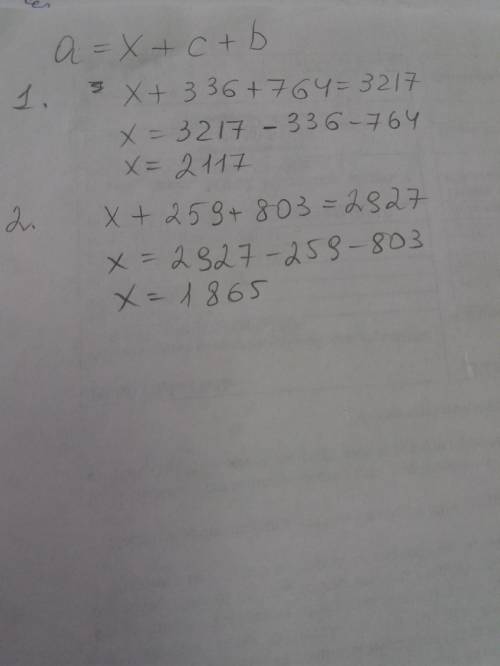 a = x + c + b
1. x + 336 + 764 = 3217
x = 3217 - 336 - 764
x = 2117
2. x + 259 + 803 = 2927
x = 2927 - 259 - 803
x = 1865